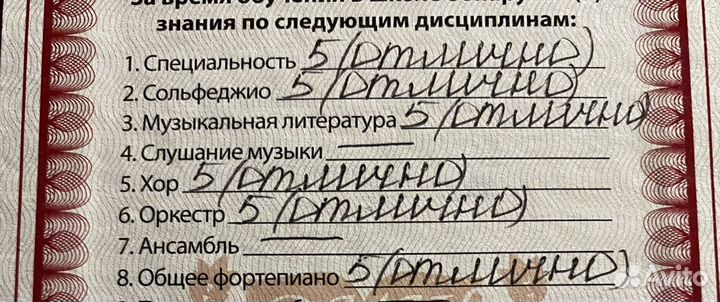 За время обучения в школе
знания по следующим дисциплинам:
1. Специальность 5 (отлично)
2. Сольфеджио 5 (отлично)
3. Музыкальная литература 5 (отлично)
4. Слушание музыки —
5. Хор 5 (отлично)
6. Оркестр 5 (отлично)
7. Ансамбль —
8. Общее фортепиано 5 (отлично)
Avito